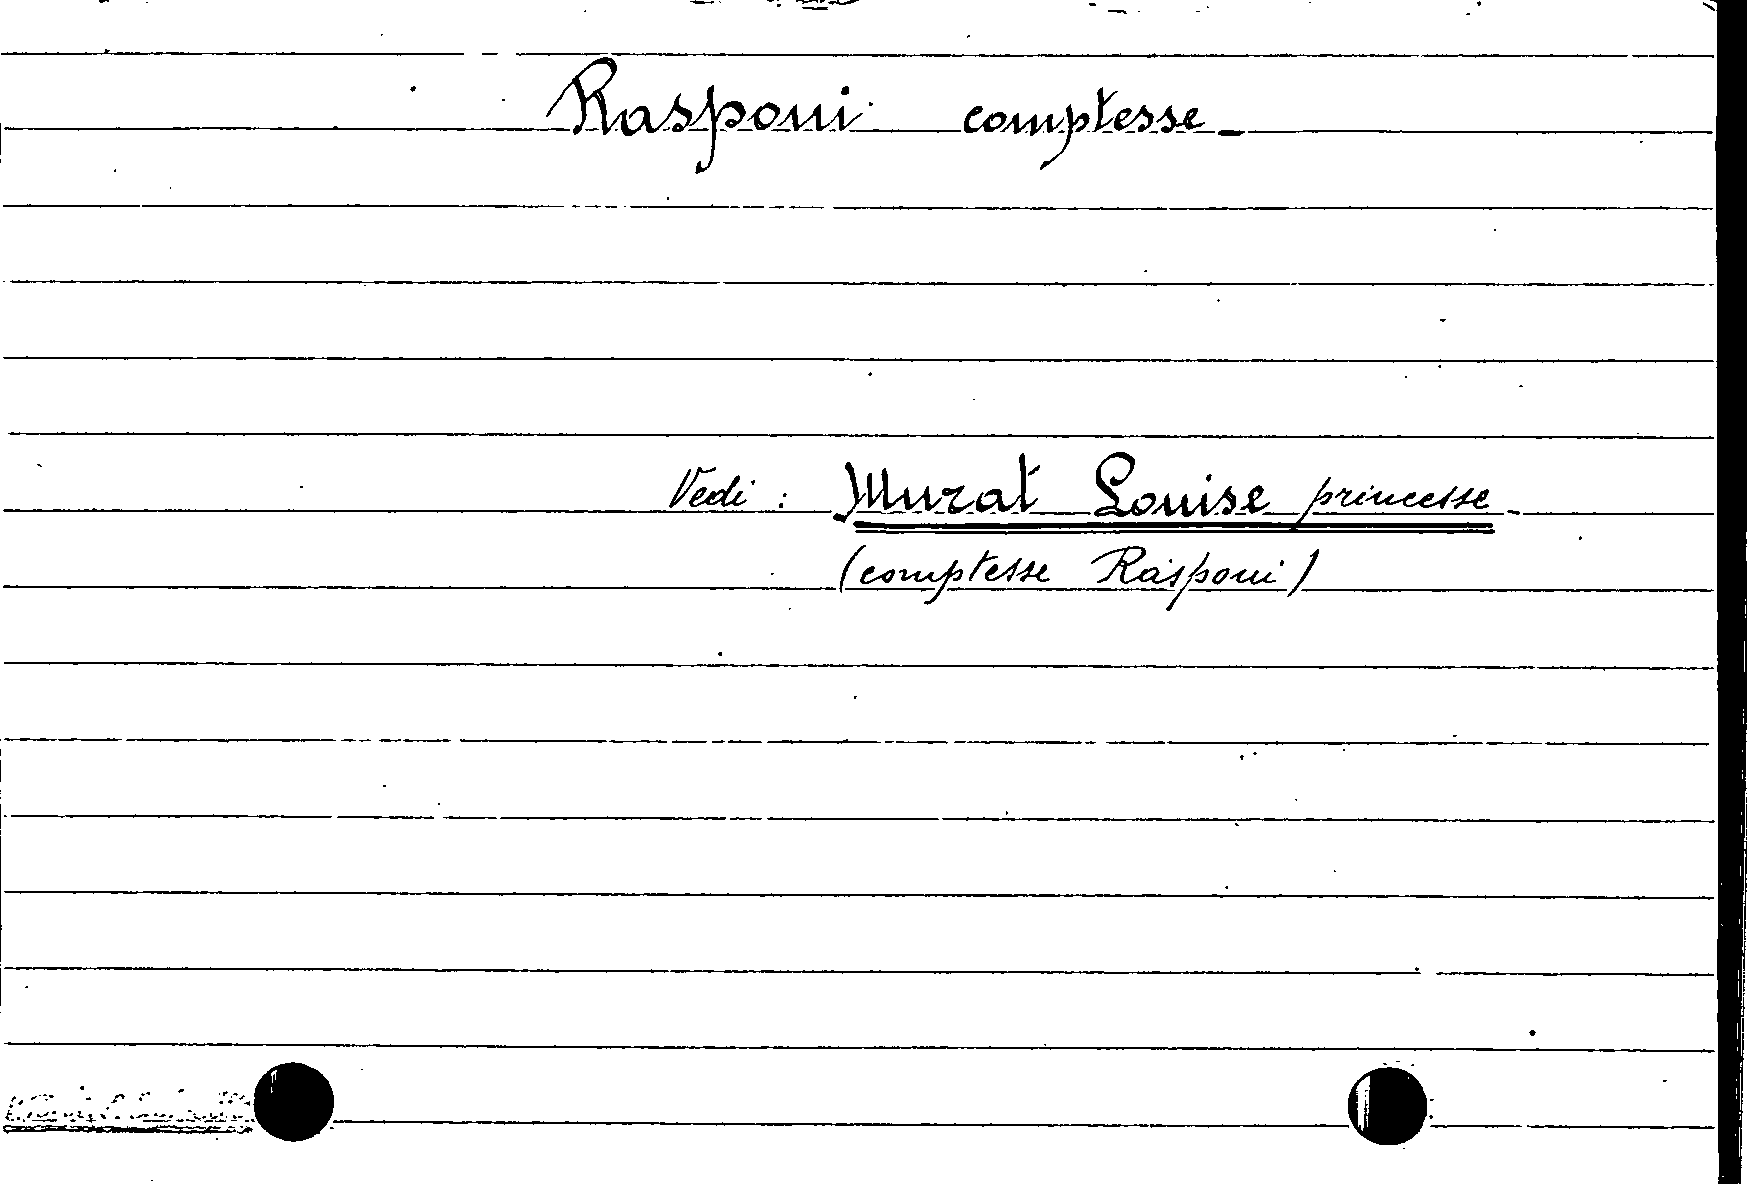 Rasponi comptesse_
Vedi : Murat Louise princesse_
(comptesse Rasponi)